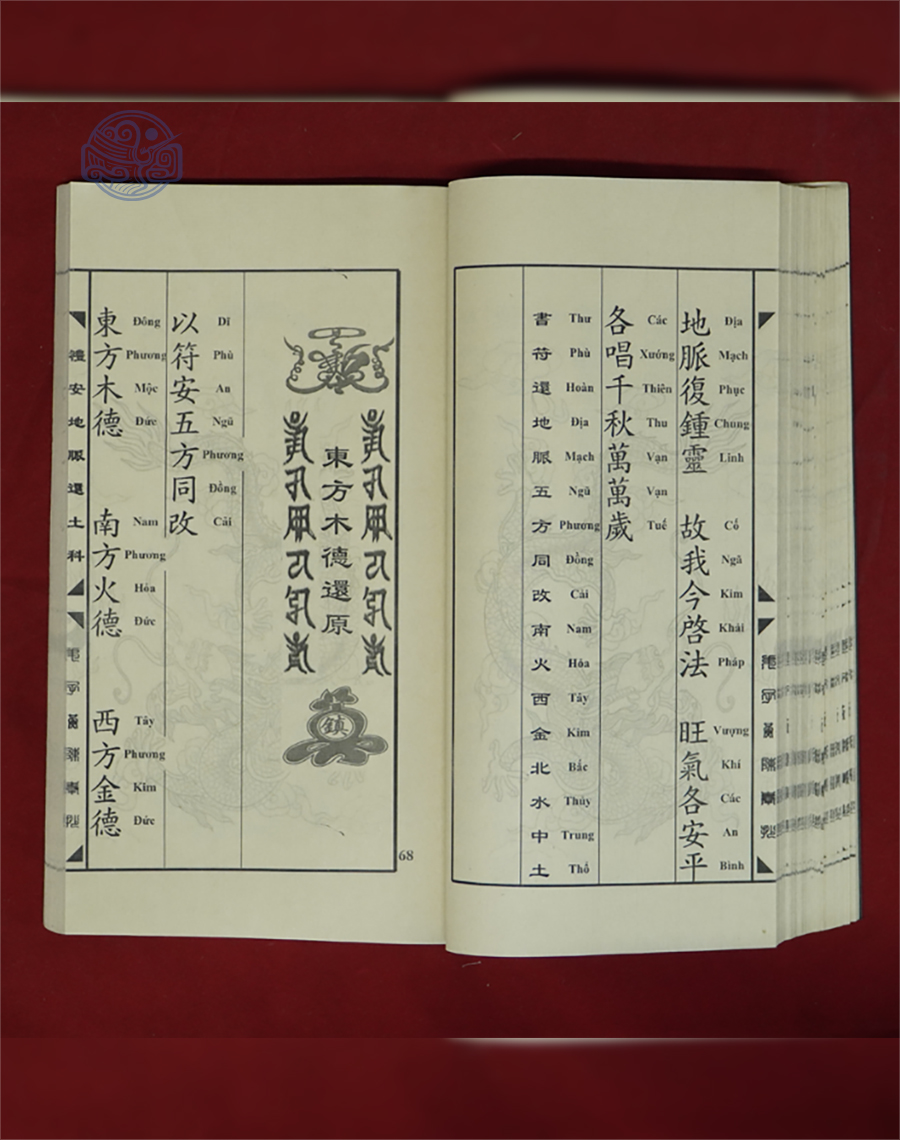 地脈復鍾靈 故我今啓法 旺氣各安平
Địa Mạch Phục Chung Linh Cố Ngã Kim Khải Pháp Vượng Khí Các An Bình
各唱千秋萬萬歲
Các Xướng Thiên Thu Vạn Vạn Tuế
書符還地脈五方同改南火西金北水中土
Thư Phù Hoàn Địa Mạch Ngũ Phương Đồng Cải Nam Hỏa Tây Kim Bắc Thủy Trung Thổ
東方木德還原
鎮
以符安五方同改
Dĩ Phù An Ngũ Phương Đồng Cải
東方木德 南方火德 西方金德
Đông Phương Mộc Đức Nam Phương Hỏa Đức Tây Phương Kim Đức
禮安地脈還土科
68